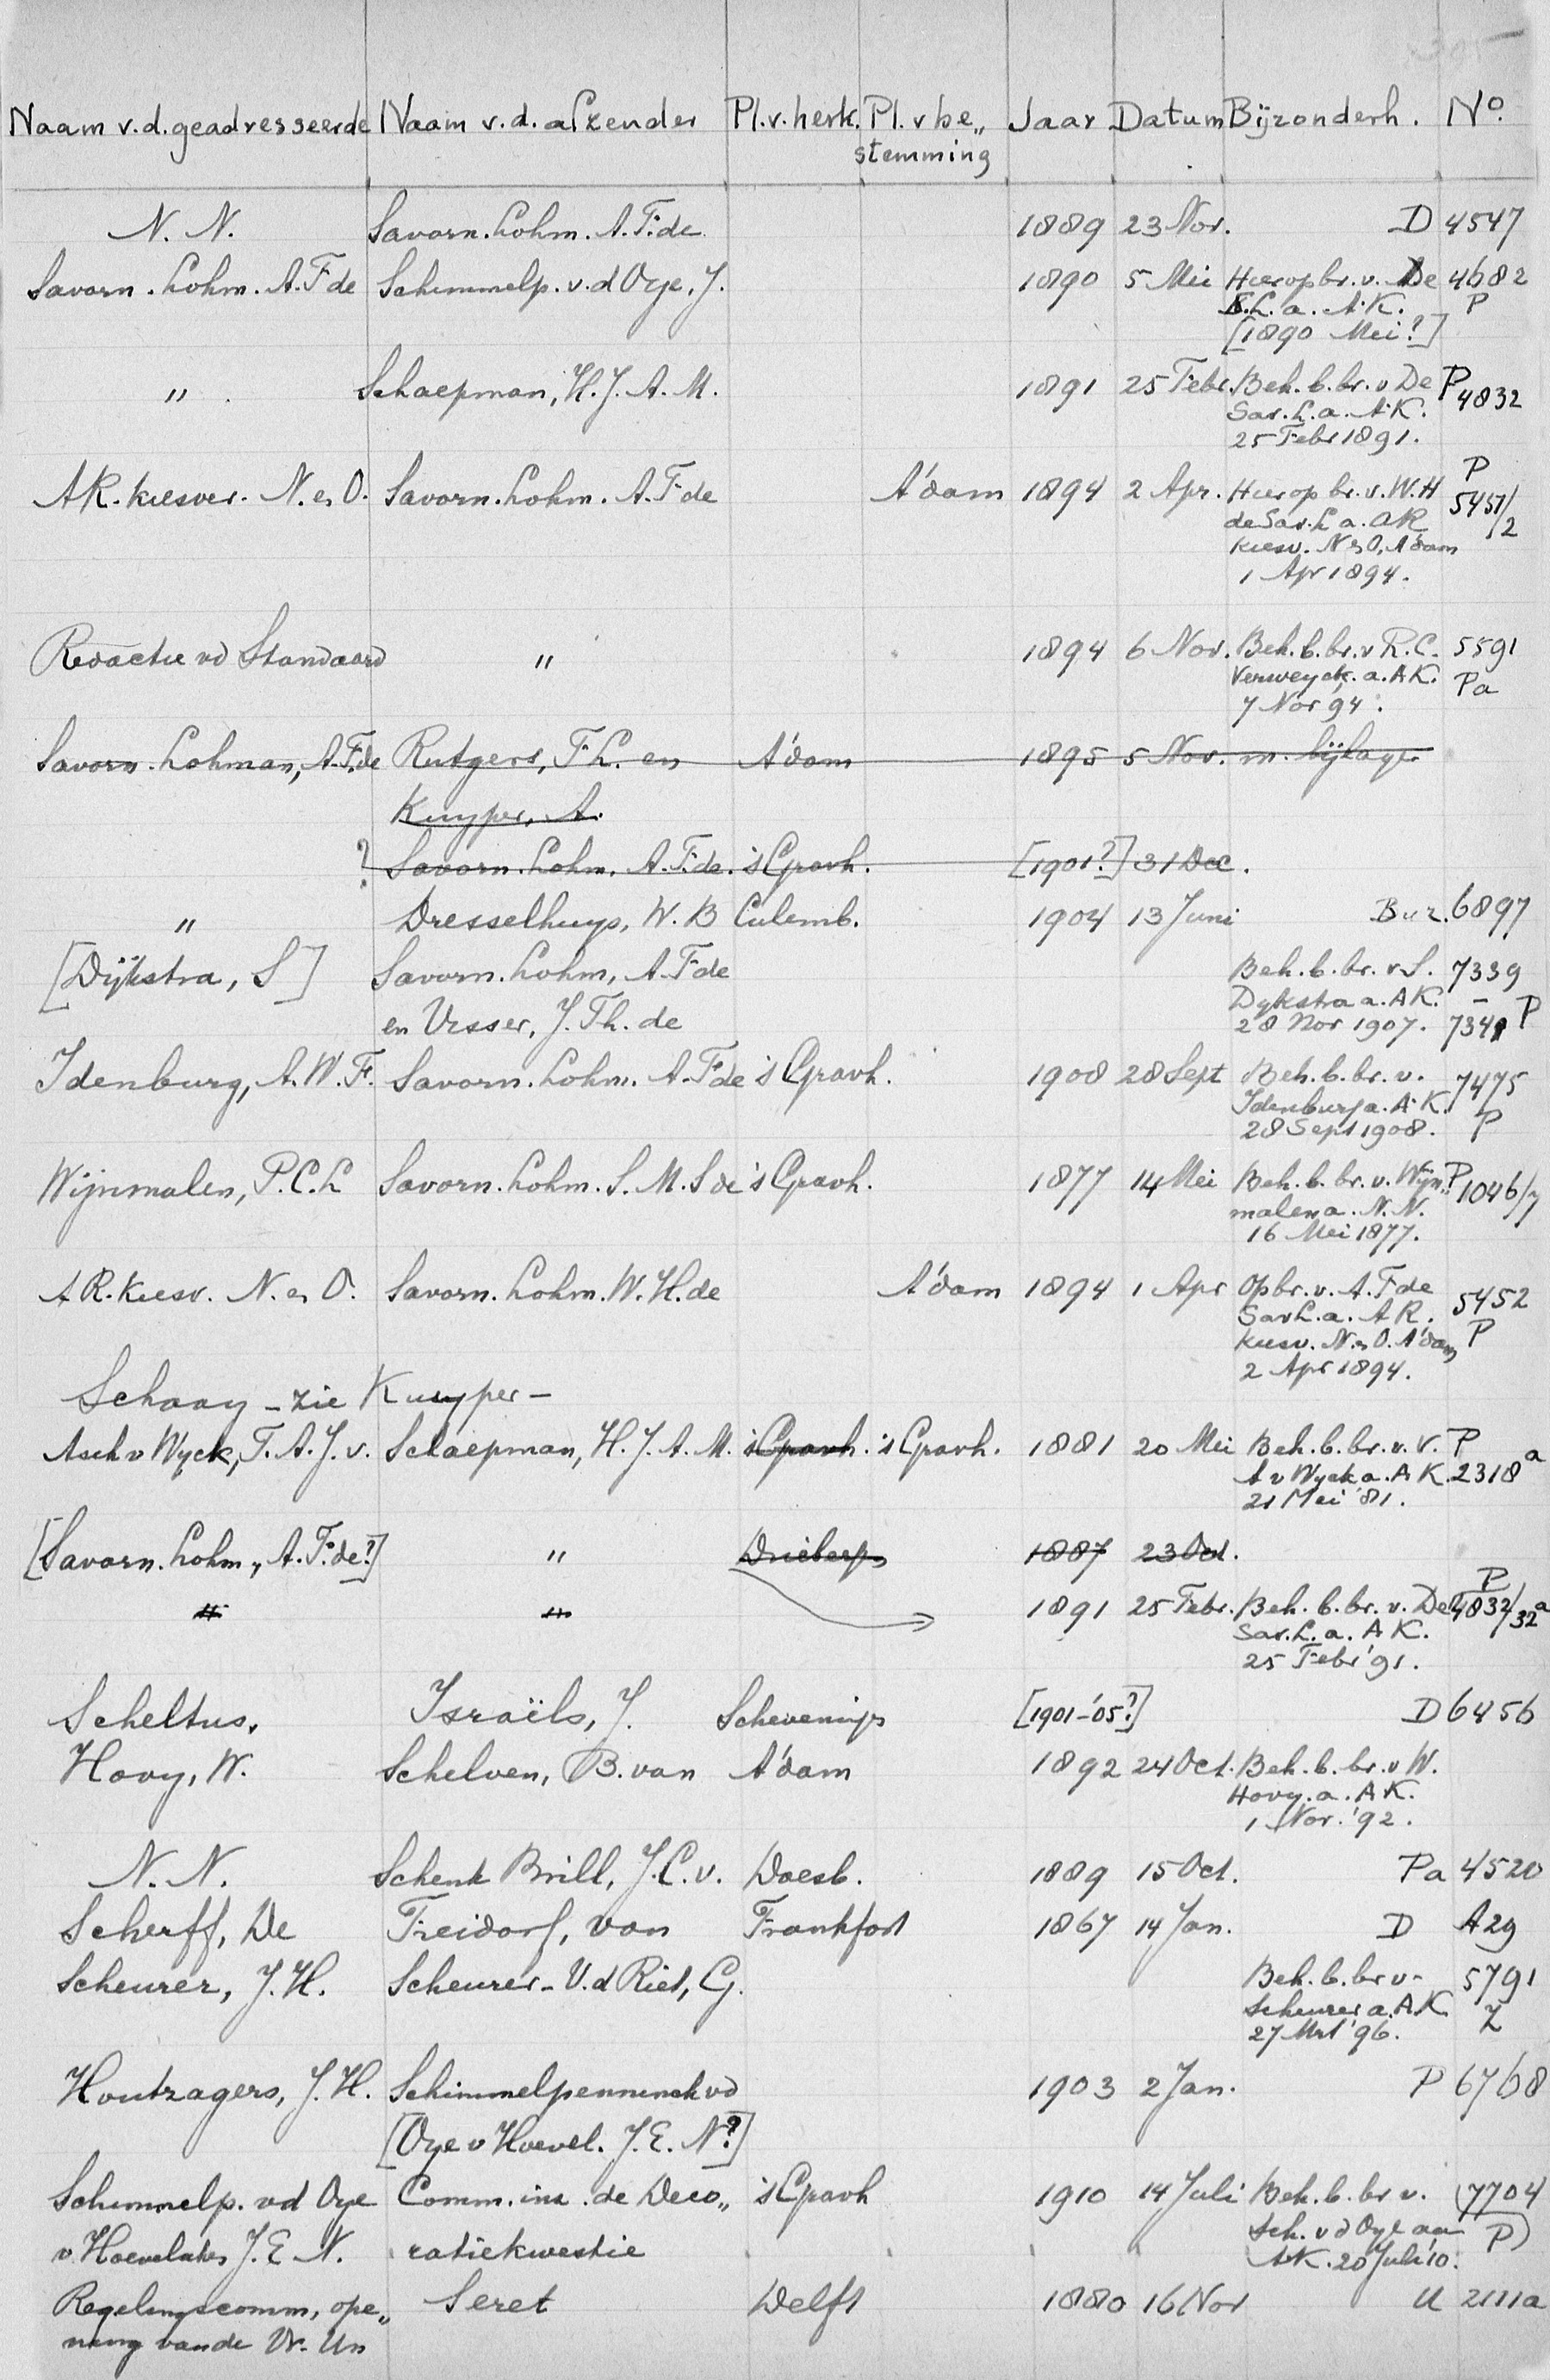 Naam v.d. geadresseerde Naam v.d. afzender Pl.v.herk. Pl. v be„ Jaar Datum Bijzonderh. No
stemming
N. N. Savorn. Lohm. A. F. de 1889 23 Nov. D 4547
Savorn. Lohm. A. F. de Schimmelp. v. d Oye. J. 1890 5 Mei Hierop br. v. De 4682
S.L. a. A.K. P
[1890 Mei?]
" Schaepman, H. J. A. M. 1891 25 Febr. Beh. b. br. v De P 4832
Sav. L. a. A.K.
25 Febr 1891.
AR. kiesver. N. en O. Savorn. Lohm. A. F. de A'dam 1894 2 Apr. Hierop br. v. W. H P 5451/2
de Sav. L a. AR
kiesv. N en O, A'dam
1 Apr 1894.
Redactie vd Standaard " 1894 6 Nov. Beh. b. br. v R. C. 5591
Verweyck. a. AK. Pa
7 Nov '94.
Savorn. Lohman, A. F. de Rutgers, F. L. en A'dam 1895 5 Nov. m. bijlage
Kuyper, A.
? Savorn. Lohm. A. F. de. 's Gravh. [1901?] 31 Dec.
" Dresselhuys, W. B Culemb. 1904 13 Juni Bur. 6897
[Dijkstra, S] Savorn. Lohm, A. F de Beh. b. br. v S. 7339
en Visser, J. Th. de Dykstra a. AK. – P
28 Nov 1907. 7341
Idenburg, A. W. F. Savorn. Lohm. A. F de 's Gravh. 1908 28 Sept Beh. b. br. v. 7475
Idenburg a. A. K. P
28 Sept 1908.
Wijnmalen, P. C. L Savorn. Lohm. S. M. S de 's Gravh. 1877 14 Mei Beh. b. br. v. Wijn„ P 1046/7
malen a. N. N.
16 Mei 1877.
A R. kiesv. N. en O. Savorn. Lohm. W. H. de A'dam 1894 1 Apr Op br. v. A. F de 5452
Sav L. a. A R. P
kiesv. N en O. A'dam
2 Apr 1894.
Schaay – zie Kuyper –
Asch v Wyck, T. A. J. v. Schaepman, H. J. A. M. 's Gravh. 's Gravh. 1881 20 Mei Beh. b. br. v. V. P
A v Wyck a. A K. 2318a
21 Mei '81.
[Savorn. Lohm., A. F. de?] " Drieberg 1887 23 Oct.
" " 1891 25 Febr. Beh. b. br. v. De P 4832/32a
Sav. L. a. A K.
25 Febr '91.
Scheltus. Israëls, J. Schevening [1901-'05?] D 6456
Hovy, W. Schelven, B. van A'dam 1892 24 Oct. Beh. b. br. v W.
Hovy. a. A K.
1 Nov. '92.
N. N. Schenk Brill, J. C. v. Doesb. 1889 15 Oct. Pa 4520
Scherff, De Freidorf, von Frankfort 1867 14 Jan. D A29
Scheurer, J. H. Scheurer - V. d Riet, G. Beh. b. br v. 5791
Scheurer a. AK. Z
27 Mrt '96.
Houtzagers, J. H. Schimmelpenninck vd 1903 2 Jan. P 6768
[Oye v Hoevel. J. E. N.?]
Schimmelp. vd Oye Comm. inz. de Deco„ 's Gravh 1910 14 Juli Beh. b. br v. (7704
v. Hoevelaken J. E N. ratiekwestie Sch. v d Oye aan P)
AK. 20 Juli '10.
Regelingscomm, ope„ Seret Delft 1880 16 Nov U 2111a
ning van de Vr. Un